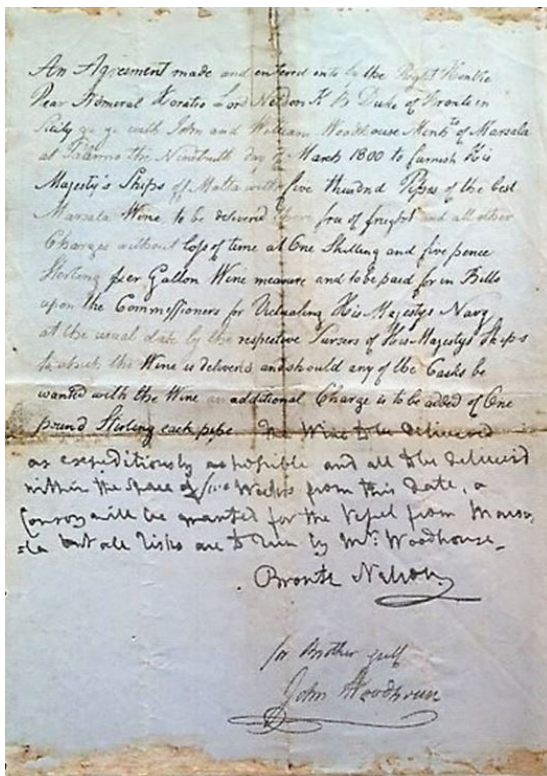 An Agreement made and entered into by the Right Honble
Rear Admiral Horatio Lord Nelson K B Duke of Bronte in
Sicily &c &c with John and William Woodhouse Mercts of Marsala
at Palermo the Nineteenth day of March 1800 to furnish His
Majesty's Ships off Malta with five Hundred Pipes of the best
Marsala Wine to be delivered there free of freight and all other
Charges without loss of time at One Shilling and five pence
Sterling per Gallon Wine measure and to be paid for in Bills
upon the Commissioners for Victualing His Majestys Navy
at the usual date by the respective Pursers of His Majestys Ships
to which the Wine is delivered and should any of the Casks be
wanted with the Wine an additional Charge is to be added of One
pound Sterling each pipe The Wine to be delivered
as expeditiously as possible and all to be delivered
within the space of Weeks from this date, a
Convoy will be granted for the Vessel from Marsa
=la but all risks are to run by Mr. Woodhouse_
Bronte Nelson
for Brother & self
John Woodhouse